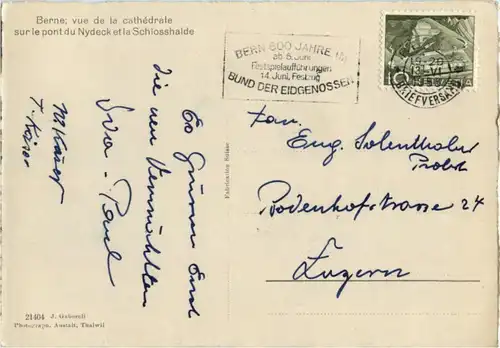 Berne; vue de la cathédrale
sur le pont du Nydeck et la Schlosshalde
BERN 600 JAHRE IM
ab 6. Juni
Festspielaufführungen
14. Juni, Festzug
BUND DER EIDGENOSSEN
BRIEFVERSAND
Fam.
Eug. Solenthaler
Probst
Bodenhofstrasse 24
Luzern
Es grüssen Euch
die neu Vermählten
Paul
T. Käser
Fabrication Suisse
21404 J. Gaberell
Photograph. Anstalt, Thalwil